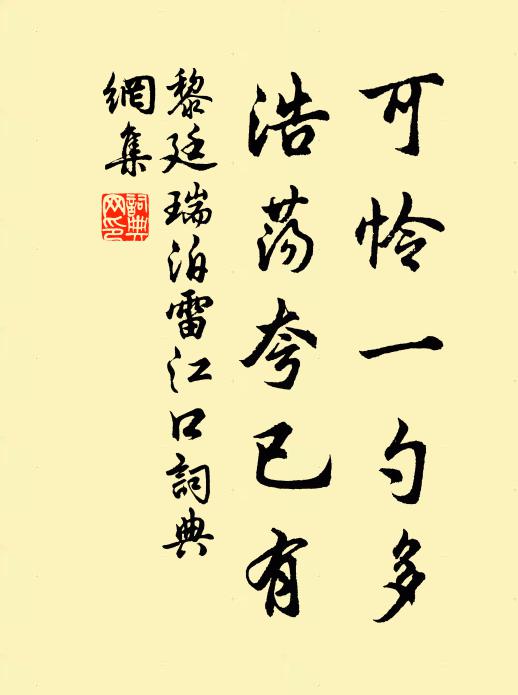 可怜一勺多
浩荡夸已有
黎廷瑞泊雷江口詞典
網集
詞典
网印